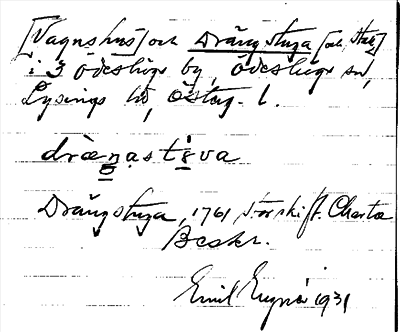 [Vagnshus] och Drängstuga [och Stall]
i 3 Ödeshögs by, Ödeshögs sn,
Lysings hd, Östag. l.
dræŋastɨva
Drängstuga, 1761, Storskift. Charta
Beskr.
Emil 1931